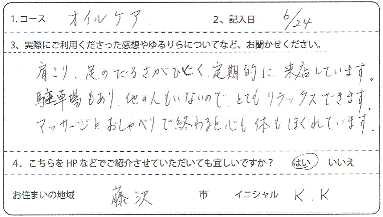 1.コース オイルケア 2、記入日 6/24
3、実際にご利用くださった感想やゆるりらについてなど、お聞かせください。
肩こり、足のだるさがひどく、定期的に来店しています。
駐車場もあり、他の人もいないので、とてもリラックスできます。
マッサージとおしゃべりで終わると心も体もほぐれています。
4.こちらをHPなどでご紹介させていただいても宜しいですか? はい いいえ
お住まいの地域 藤沢 市 イニシャル K.K